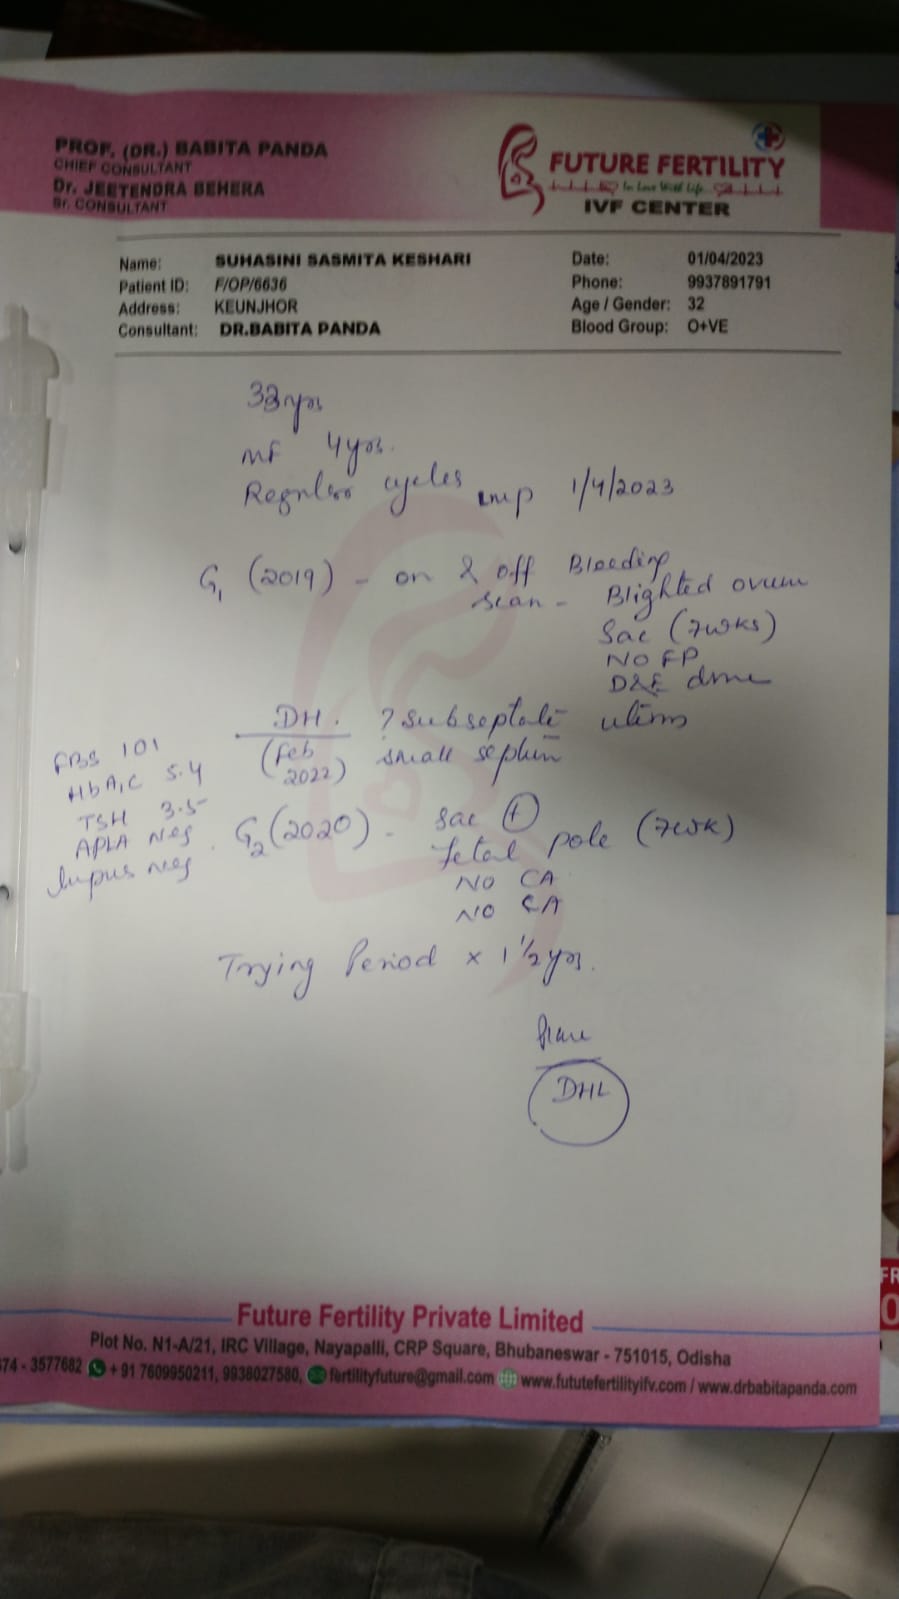 PROF. (DR.) BABITA PANDA
CHIEF CONSULTANT
Dr. JEETENDRA BEHERA
Sr. CONSULTANT
FUTURE FERTILITY
In Love With Life
IVF CENTER
Name: SUHASINI SASMITA KESHARI
Patient ID: F/OP/6636
Address: KEUNJHOR
Consultant: DR.BABITA PANDA
Date: 01/04/2023
Phone: 9937891791
Age / Gender: 32
Blood Group: O+VE
33yrs
MF 4yrs.
Regular cycles LMP 1/4/2023
G1 (2019) - on & off Bleeding
scan - Blighted ovum
Sac (7wks)
NO FP
D&E done
DH. ? Subseptate uterus
(Feb 2022) small septum
FBS 101
HbA1C 5.4
TSH 3.5
APLA neg
lupus neg
G2 (2020) - Sac (+)
Fetal pole (7wk)
NO CA
NO CA
Trying Period x 1 1/2 yrs.
DHL
FR
0
Future Fertility Private Limited
Plot No. N1-A/21, IRC Village, Nayapalli, CRP Square, Bhubaneswar - 751015, Odisha
674 - 3577682 +91 7609950211, 9938027580, fertilityfuture@gmail.com www.fututefertilityifv.com / www.drbabitapanda.com